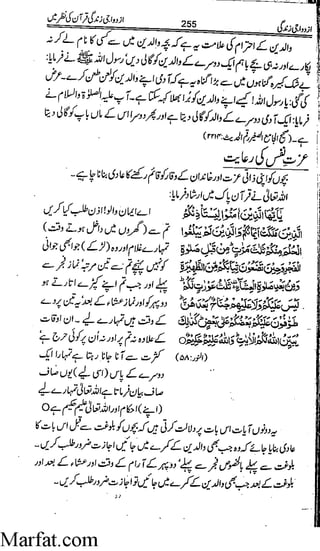 ازدواجی زندگی قرآن کی نظر میں
255
ازدواجی زندگی
والدین کے احترام کی علامت یہ ہے کہ بچہ والدین میں سے کسی کا نام لے کر نہ
پکارے اور نہ ہی بچے باہم ایک دوسرے کے والدین کو گالی دیں: رسول اللہ ﷺ نے فرمایا:
بے شک کبیرہ گناہوں میں سے بڑا گناہ یہ ہے کہ آدمی اپنے والدین کو لعن طعن کرے۔ عرض
کی گئی: یا رسول اللہ! کیسے اپنے والدین کو بُرا بھلا کہہ سکتا ہے۔ آپ علیہ الصلوٰۃ والسلام نے
فرمایا: ایک آدمی دوسرے کے والدین کو گالی دیتا ہے اور پھر دوسرا اس کے ماں باپ کو گالی دیتا
ہے۔ (صحیح الجامع الصغیر رقم الحدیث: ۲۲۱۴)
عزتِ نفس کی رعایت
بچوں کو اپنی ذاتی عزت اور خاندان کے وقار کو قائم رکھنے کا عادی بنانا چاہیے۔
اللہ تعالیٰ نے قرآن پاک میں ارشاد فرمایا:
يٰٓاَيُّهَا الَّذِيْنَ اٰمَنُوْا لِيَسْتَاْذِنْكُمُ
الَّذِيْنَ مَلَكَتْ اَيْمَانُكُمْ وَالَّذِيْنَ لَمْ يَبْلُغُوا
الْحُلُمَ مِنْكُمْ ثَلٰثَ مَرّٰتٍ مِنْ قَبْلِ صَلٰوةِ
الْفَجْرِ وَحِيْنَ تَضَعُوْنَ ثِيَابَكُمْ مِّنَ الظَّهِيْرَةِ
وَمِنْ بَعْدِ صَلٰوةِ الْعِشَآءِ ثَلٰثُ عَوْرٰتٍ لَّكُمْ
لَيْسَ عَلَيْكُمْ وَلَا عَلَيْهِمْ جُنَاحٌ بَعْدَهُنَّ
طَوّٰفُوْنَ عَلَيْكُمْ بَعْضُكُمْ عَلٰى بَعْضٍ كَذٰلِكَ
يُبَيِّنُ اللّٰهُ لَكُمُ الْاٰيٰتِ وَاللّٰهُ عَلِيْمٌ حَكِيْمٌ
(النور: ۵۸)
اے ایمان والو! اذن طلب کیا کریں
تم سے (گھروں میں داخل ہوتے وقت)
تمہارے غلام اور وہ (لڑکے) جو ابھی جوانی
کو نہیں پہنچے تم سے تین مرتبہ نماز فجر سے
پہلے اور جب تم اپنے کپڑے اتارتے ہو
دوپہر کو اور نماز عشاء کے بعد یہ تین پردے
کے وقت ہیں تمہارے لیے۔ ان اوقات
کے علاوہ نہ تم پر اور نہ ان پر کوئی حرج ہے
کثرت سے آنا جانا رہتا ہے تمہارا ایک
دوسرے کے پاس (اس لیے) یوں صاف
صاف بیان فرماتا ہے اللہ تعالیٰ تمہارے لیے
(اپنے) احکام اور اللہ تعالیٰ علیم حکیم ہے
یہ دونوں آیات اس بات پر دلالت کرتی ہیں کہ بچوں کو بلوغت سے قبل اس بات کا
عادی بنایا جائے کہ وہ جب بھی والدین کے کمرے میں جائیں اجازت ضرور طلب کریں۔
بلوغت سے پہلے بالخصوص فجر سے پہلے، دوپہر کے آرام کے وقت اور عشاء کے بعد اور
بلوغت کے بعد جب بھی والدین کے کمرے میں جائیں تو اجازت ضرور طلب کریں۔
Marfat.com